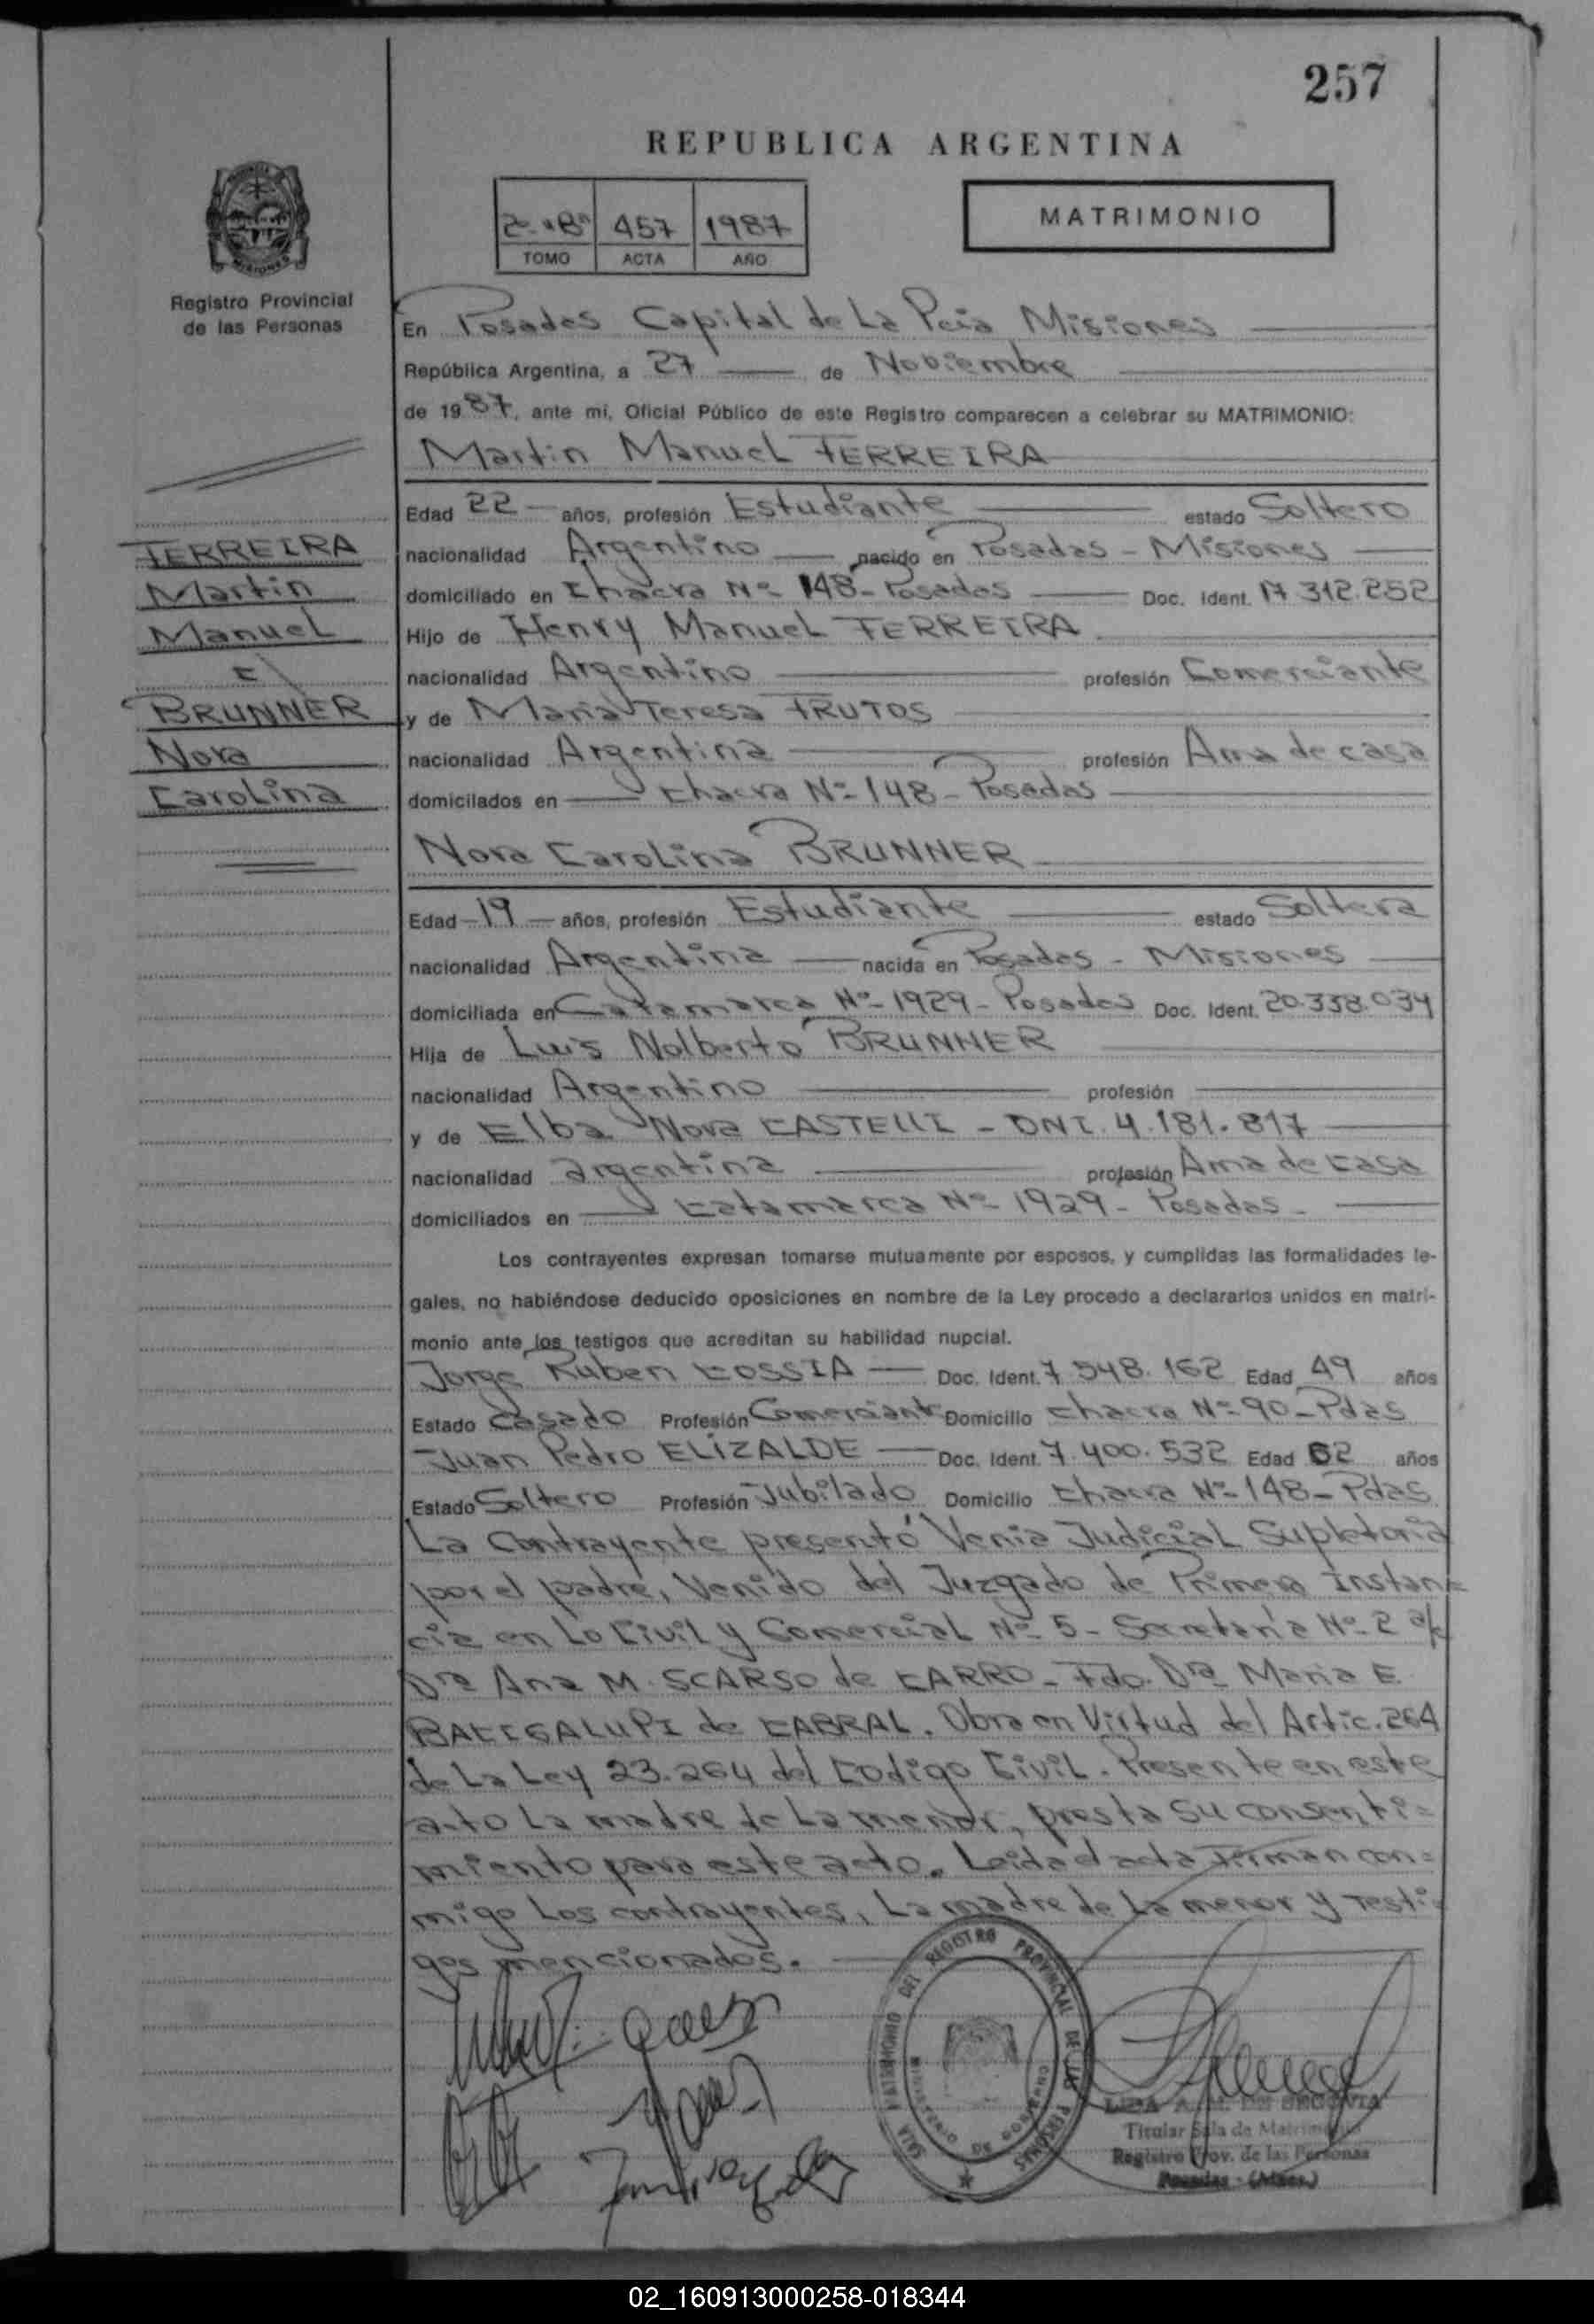 257
REPUBLICA ARGENTINA
2º "Bº 457 1987
TOMO ACTA AÑO
MATRIMONIO
Registro Provincial
de las Personas
En Posadas Capital de La Pcia Misiones
República Argentina, a 27 de Nobiembre
de 1987, ante mi, Oficial Público de este Registro comparecen a celebrar su MATRIMONIO:
Martin Manuel FERREIRA
Edad 22 años, profesión Estudiante estado Soltero
nacionalidad Argentino nacido en Posadas - Misiones
domiciliado en Chacra Nº 148 - Posadas Doc. Ident. 17.312.252
Hijo de Henry Manuel FERREIRA
nacionalidad Argentino profesión Comerciante
y de Maria Teresa FRUTOS
nacionalidad Argentina profesión Ama de casa
domicilados en Chacra Nº 148 - Posadas
FERREIRA
Martin
Manuel
c\
BRUNNER
Nora
Carolina
Nora Carolina BRUNNER
Edad 19 años, profesión Estudiante estado Soltera
nacionalidad Argentina nacida en Posadas - Misiones
domiciliada en Catamarca Nº 1929 - Posadas Doc. Ident. 20.338.034
Hija de Luis Nolberto BRUNNER
nacionalidad Argentino profesión
y de Elba Nora CASTELLI - DNI. 4.181.817
nacionalidad argentina profesión Ama de casa
domiciliados en Catamarca Nº 1929 - Posadas -
Los contrayentes expresan tomarse mutuamente por esposos, y cumplidas las formalidades le-
gales, no habiéndose deducido oposiciones en nombre de la Ley procedo a declararlos unidos en matri-
monio ante los testigos que acreditan su habilidad nupcial.
Jorge Ruben COSSIA Doc. Ident. 7.548.162 Edad 49 años
Estado Casado Profesión Comerciante Domicilio Chacra Nº 90 - Pdas
Juan Pedro ELIZALDE Doc. Ident. 7.400.532 Edad 62 años
Estado Soltero Profesión Jubilado Domicilio Chacra Nº 148 - Pdas
La Contrayente presentó Venia Judicial Supletoria
por el padre, Venido del Juzgado de Primera Instan=
cia en Lo Civil y Comercial Nº 5 - Secretaría Nº 2 a/c
Dra Ana M. SCARSO de CARRO - Fdo. Dra Maria E.
BACIGALUPI de CABRAL. Obra en Virtud del Artic. 264
de La Ley 23.264 del Codigo Civil. Presente en este
acto La madre de La menor, presta su consenti=
miento para este acto. Leida el acta Firman con=
migo Los contrayentes, La madre de La menor y Testi=
gos mencionados.
SALA MATRIMONIO DEL REGISTRO PROVINCIAL DE LAS PERSONAS
MINISTERIO DE GOBIERNO
DE SEGOVIA
Titular Sala de Matrimonio
Registro Prov. de las Personas
Posadas - (Mnes.)
02_160913000258-018344